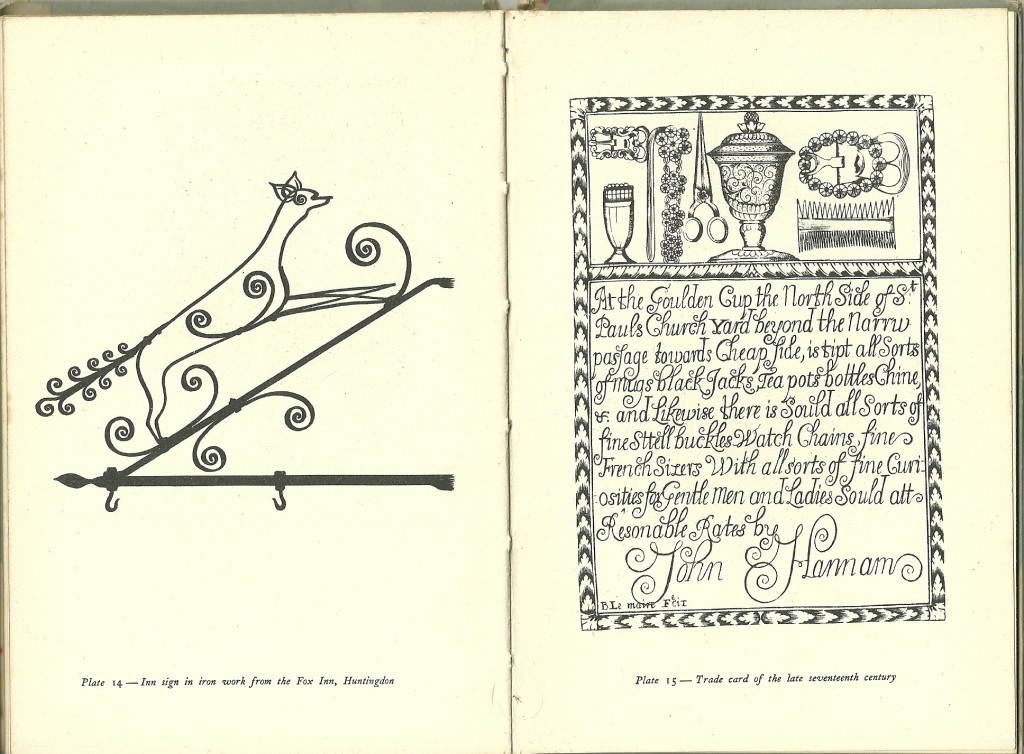 Plate 14 — Inn sign in iron work from the Fox Inn, Huntingdon
At the Goulden Cup the North Side of St
Pauls Church Yard beyond the Narrw
passage towards Cheap side, is tipt all Sorts
of mugs black Jacks, Tea pots bottles Chine,
&c and Likewise there is Sould all Sorts of
fine Sttell buckles Watch Chains, fine
French Sizers With all sorts of fine Curi-
osities for Gentle men and Ladies Sould att
Resonable Rates by
John Hannam
B Le maire Fecit
Plate 15 — Trade card of the late seventeenth century